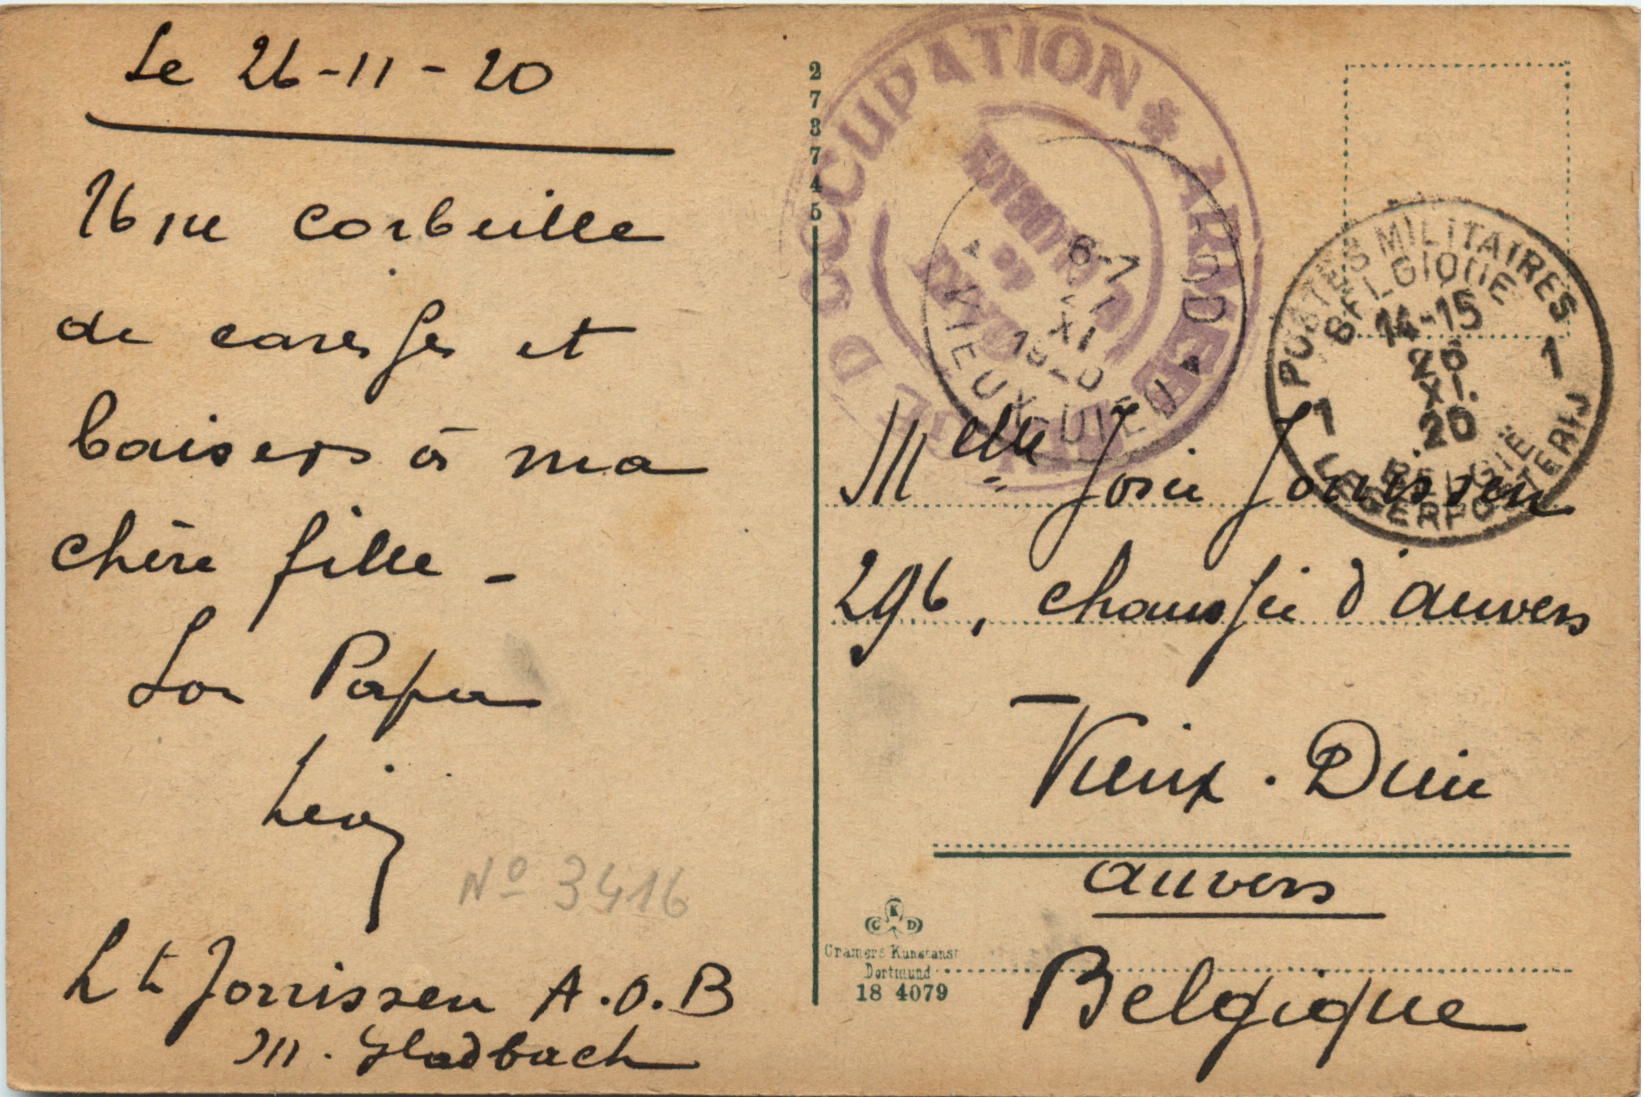 Le 26-11-20
Une corbeille
de caresses et
baisers à ma
chère fille -
Son Papa
Lt Jorrissen A.O.B
M. Gladbach
No 3416
273745
D'OCCUPATION * ARMÉE
6-7
XI
1920
VIEUX-DIEU
POSTES MILITAIRES
BELGIQUE
14-15
26
XI.
20
1 1
BELGIË
LEGERPOSTERIJ
Melle Josée Jorrissen
296, chaussée d'anvers
Vieux-Dieu
anvers
Belgique
C K D
Cramers Kunstanst
Dortmund
18 4079